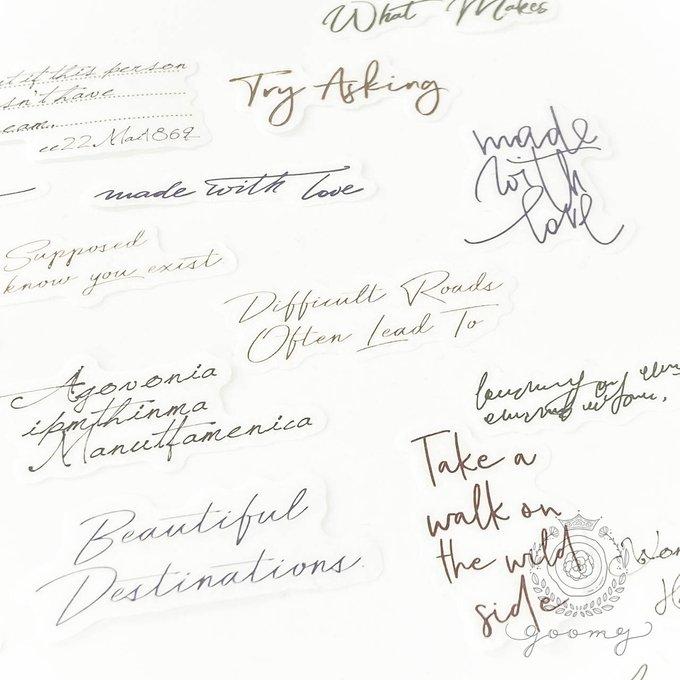 What Makes
if this person
sn't have
eam.
Try Asking
made
with
love
made with love
Supposed
know you exist
Difficult Roads
Often Lead To
Agovonia
ipmthinma
Manuttamenica
Take a
walk on
the wild
side
Beautiful
Destinations
goomg